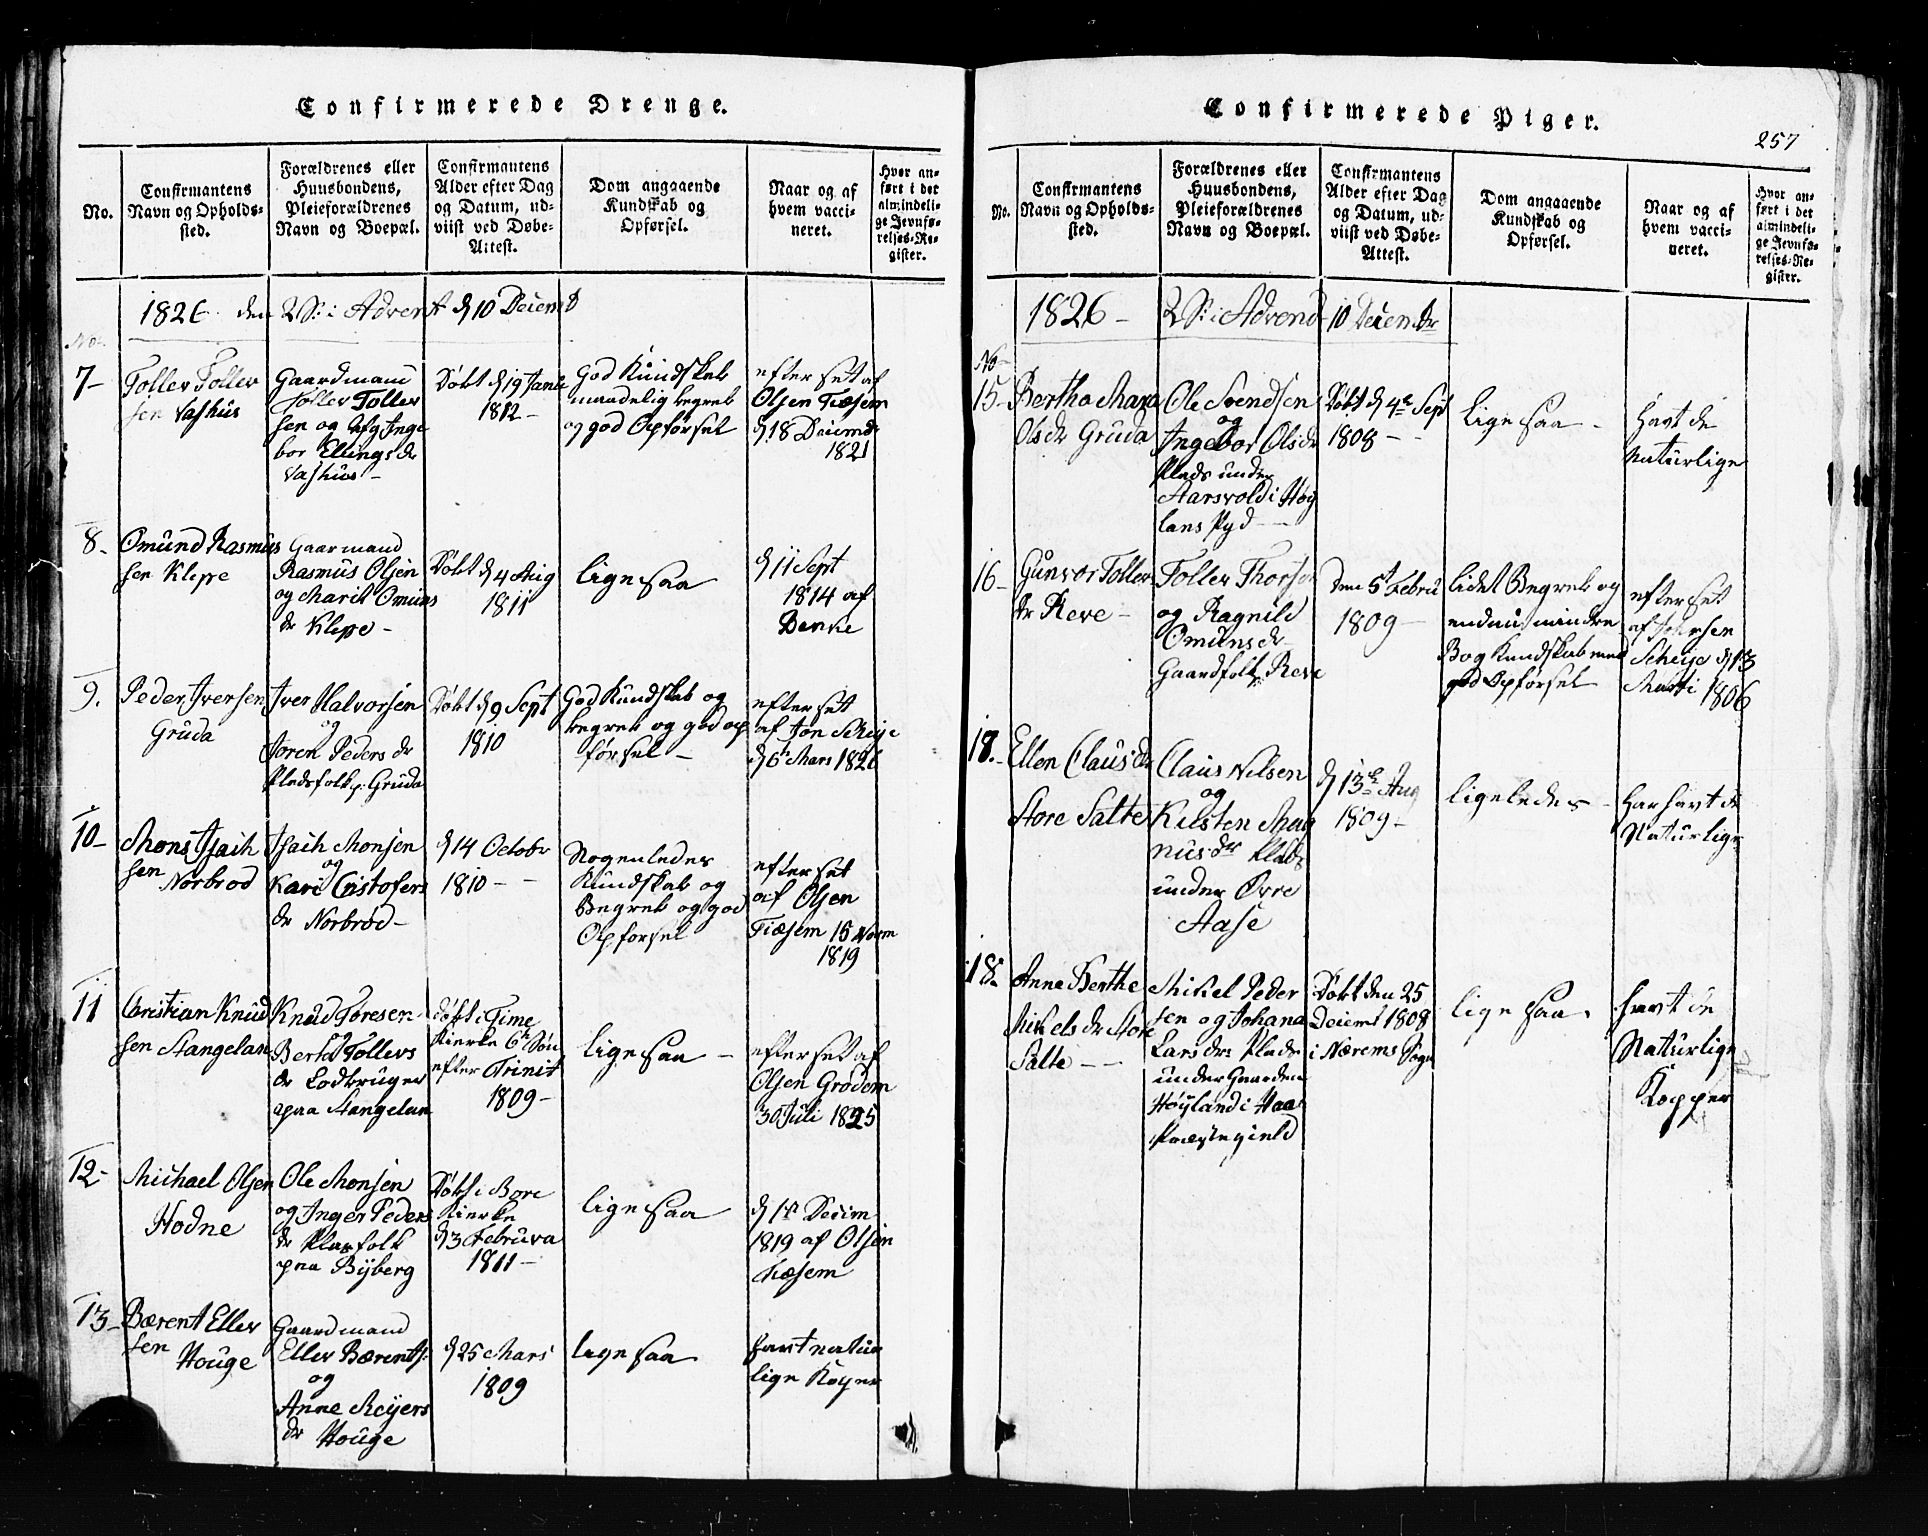 Confirmerede Drenge.
No.
Confirmantens
Navn og Opholds-
sted.
Forældrenes eller
Huusbondens,
Pleieforældrenes
Navn og Boepæl.
Confirmantens
Alder efter Dag
og Datum, ud-
viist ved Døbe-
Attest.
Dom angaaende
Kundskab og
Opførsel.
Naar og af
hvem vacci-
neret.
Hvor an-
ført i det
almindeli-
ge Jevnfø-
relses-Re-
gister.
1826 den 2 S: i Advent d 10 Decemb
No.
7-
Tollev Tollev
sen Vashus
Gaardmand
Tollev Tollev
sen og Inge
bor Ellings dr
Vashus -
Døbt d 19 Janu
1812 -
God Kundskab
maadelig begreb
og god Opførsel
efter set af
Olsen Tiæsem
d 18 Decemb
1821
8-
Omund Rasmus
sen Klepe
Gaarmand
Rasmus Olsen
og Marit Omuns
dr Klepe -
Døbt d 4 Aug
1811
lige saa
d 11 Sept
1814 af
Benke
9.
Peder Iversen
Gruda
Iver Halvorsen
og
Joren Peders dr
Pladsfolk p: Gruda
Døbt d 9 Sept
1810
God Kundskab og
begreb og god op
førsel -
efter set
af Jon Scheije
d 6 Mars 1826
10-
Mons Isaih
sen Norbrod
Isaih Monsen
og
Kari Cristofers
dr Norbrod -
d 14 Octobr
1810 - -
Nogenledes
Kundskab og
Begreb og god
Opførsel
efter set
af Olsen
Tiæsem 15 Novm
1819
11
Christian Knud
sen Stangelan
Knud Toresen
og
Berta Tollevs
dr Lodbruger
paa Stangelan
døbt i Time
Kierke 6 Søn
efter Trinit
1809 -
lige saa -
efter set af
Olsen Grodem
30 Juli 1825
12-
Michael Olsen
Hodne
Ole Monsen
og Inger Peders
dr Plasfolk
paa Byberg
Døbt i Bore
Kierke
d 3 Februva
1811 -
lige saa
d 1 Decim
1819 af Olsen
Tiæsem
13-
Bærent Ellev
sen
Houge
Gaardmand
Ellev Bærents:
og
Anne Reijers
dr Houge
d 25 Mars
1809
lige saa
havt natur
lige Koper
Confirmerede Piger.
257
No.
Confirmantens
Navn og Opholds-
sted.
Forældrenes eller
Huusbondens,
Pleieforældrenes
Navn og Boepæl.
Confirmantens
Alder efter Dag
og Datum, ud-
viist ved Døbe-
Attest.
Dom angaaende
Kundskab og
Opførsel.
Naar og af
hvem vacci-
neret.
Hvor an-
ført i det
almindeli-
ge Jevnfø-
relses-Re-
gister.
1826 - 2 S: i Advend 10 Decembr
No
15-
Bertha Mara
Olsdr Gruda
Ole Svendsen
og
Ingebor Olsdr
Plads under
Aarsvold i Høg
lans Pgd -
Døbt d 4 Sept
1808 - -
lige saa -
Havt de
Naturlige
16-
Gunvor Tollev
dr Reve -
Tollev Thorsen
og Ragnild
Omunsdr
Gaardfolk Reve
den 5 Febru
1809 -
lidet Begreb og
endnu mindre
Bog Kundskab med
god Opførsel
efter set
af Johnsen
Scheije d 13
Marti 1806
18.-
Ellen Clausdr
Store Salte
Claus Nilsen
og
Kirsten Mag
nusdr Plads
under Øvre
Aase
d 13 Aug
1809 -
ligeledes -
Har havt de
Naturlige
18-
Anne Berthe
Mikels dr Store
Salte - -
Mikel Peder
sen og Johana
Larsdr Plads
under Gaarden
Høyland i Haa
Præstegield
Døbt den 25
Decemb 1808
i Nærems Sogn
lige saa.
havt de
Naturlige
Kopper